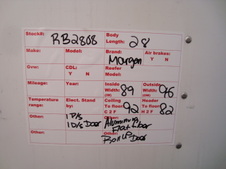 Stock#: RB2808 Body Length: 28'
Make: Model: Brand: Morgan Air brakes: Y N
Gvw: CDL: Y N Reefer Model:
Mileage: Year: Inside Width: 89 Outside Width: 96
Temperature range: Elect. Stand by: Ceiling To floor 92 Header To floor 82
Other: 1 P/S
1 C/S Door Aluminum
Flat Floor
Other: Other:
Door